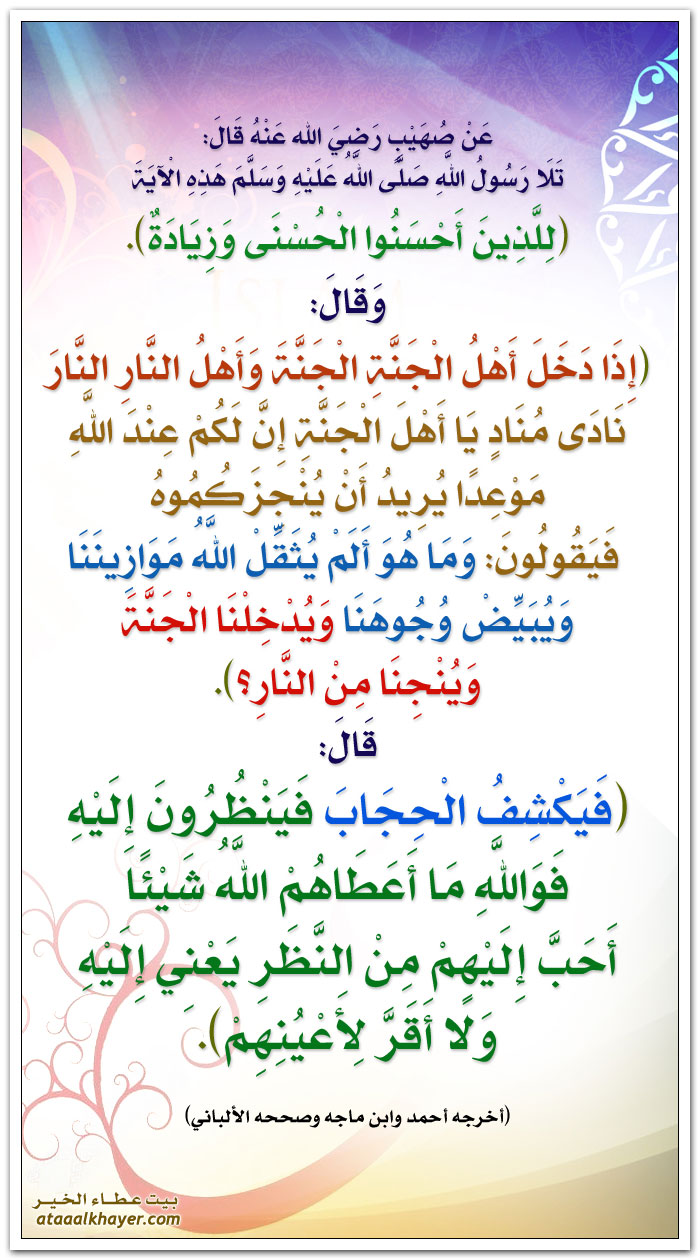 عَنْ صُهَيْبٍ رَضِيَ الله عَنْهُ قَالَ:
تَلَا رَسُولُ اللَّهِ صَلَّى اللَّهُ عَلَيْهِ وَسَلَّمَ هَذِهِ الْآيَةَ
(لِلَّذِينَ أَحْسَنُوا الْحُسْنَى وَزِيَادَةٌ).
وَقَالَ:
(إِذَا دَخَلَ أَهْلُ الْجَنَّةِ الْجَنَّةَ وَأَهْلُ النَّارِ النَّارَ
نَادَى مُنَادٍ يَا أَهْلَ الْجَنَّةِ إِنَّ لَكُمْ عِنْدَ اللَّهِ
مَوْعِدًا يُرِيدُ أَنْ يُنْجِزَكُمُوهُ
فَيَقُولُونَ: وَمَا هُوَ أَلَمْ يُثَقِّلْ اللَّهُ مَوَازِينَنَا
وَيُبَيِّضْ وُجُوهَنَا وَيُدْخِلْنَا الْجَنَّةَ
وَيُنْجِنَا مِنْ النَّارِ؟).
قَالَ:
(فَيَكْشِفُ الْحِجَابَ فَيَنْظُرُونَ إِلَيْهِ
فَوَاللَّهِ مَا أَعَطَاهُمْ اللَّهُ شَيْئًا
أَحَبَّ إِلَيْهِمْ مِنْ النَّظَرِ يَعْنِي إِلَيْهِ
وَلَا أَقَرَّ لِأَعْيُنِهِمْ).
(أخرجه أحمد وابن ماجه وصححه الألباني)
بيت عطاء الخير
ataaalkhayer.com